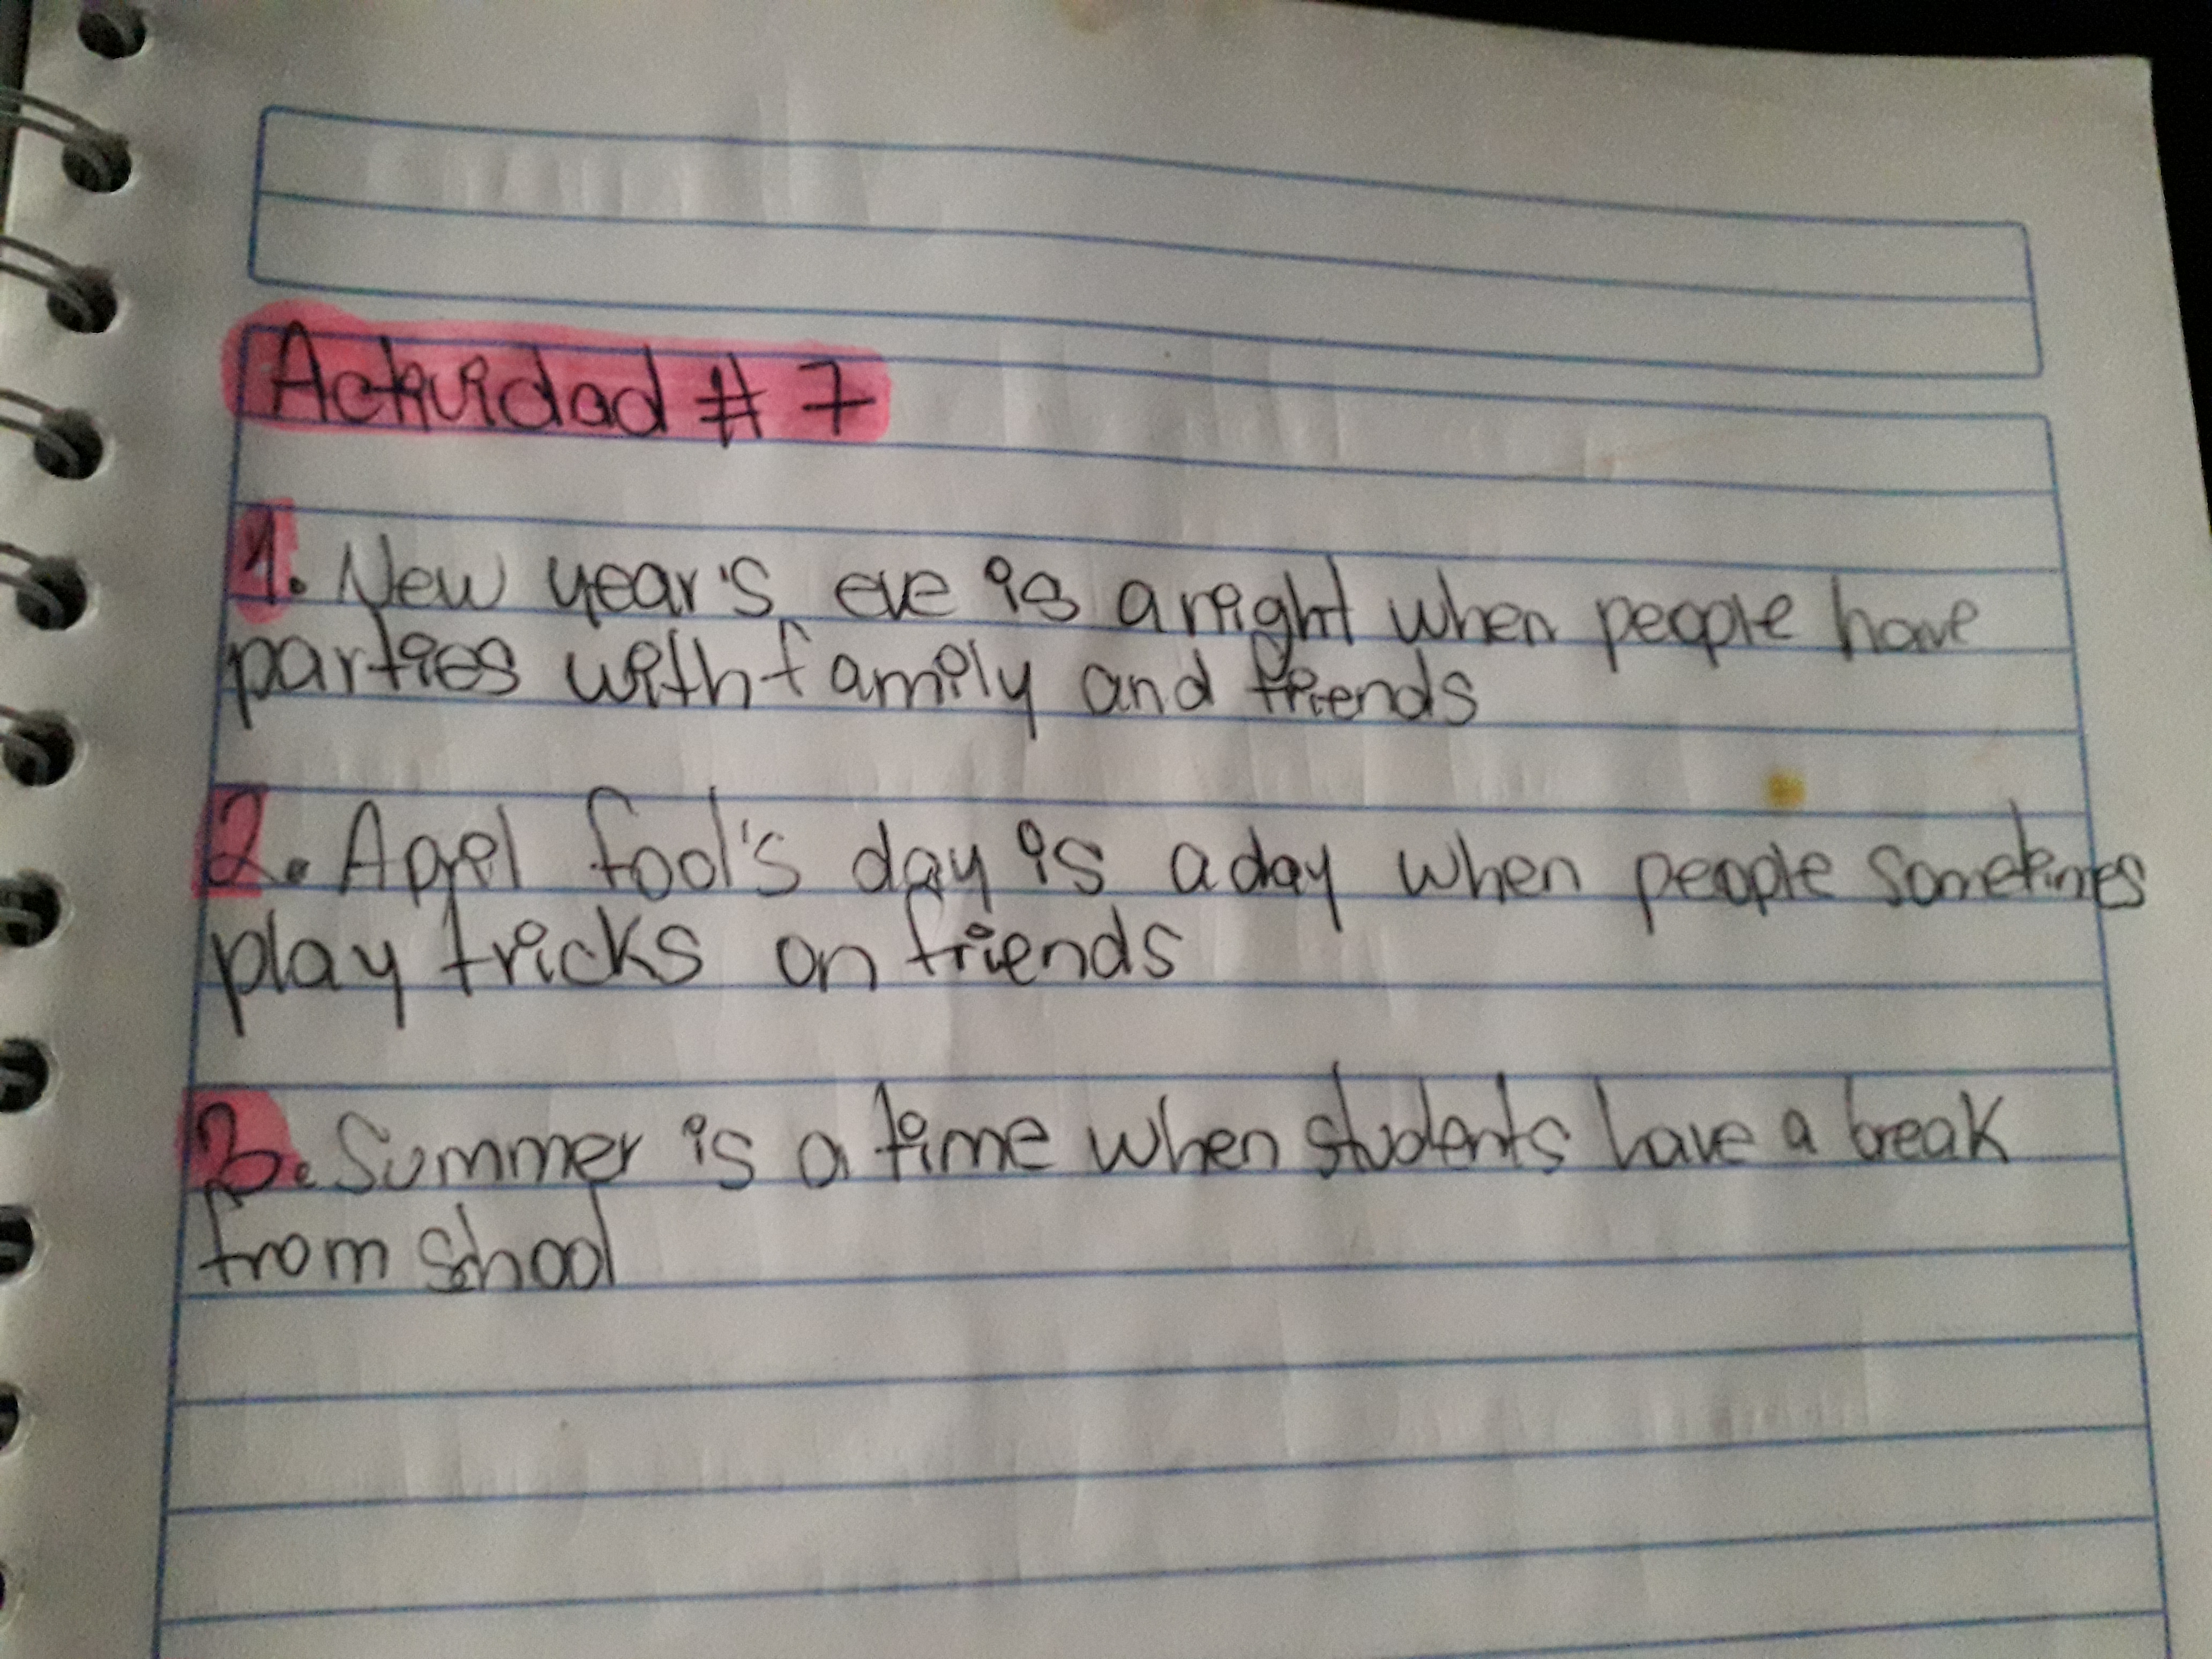 Actividad # 7
1. New year's eve is a night when people have
parties with family and friends
2. April fool's day is a day when people sometimes
play tricks on friends
3. Summer is a time when students have a break
from school